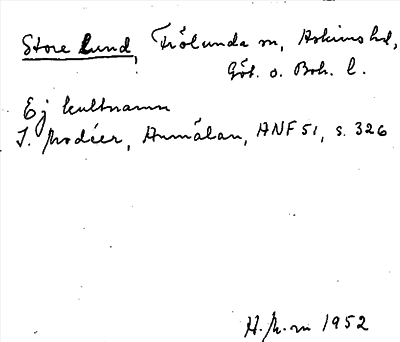 Store Lund, Frölunda sn, Askims hd,
Göt. o. Boh. l.
Ej kultnamn
I. Modéer, Anmälan, ANF 51, s. 326
H.
1952